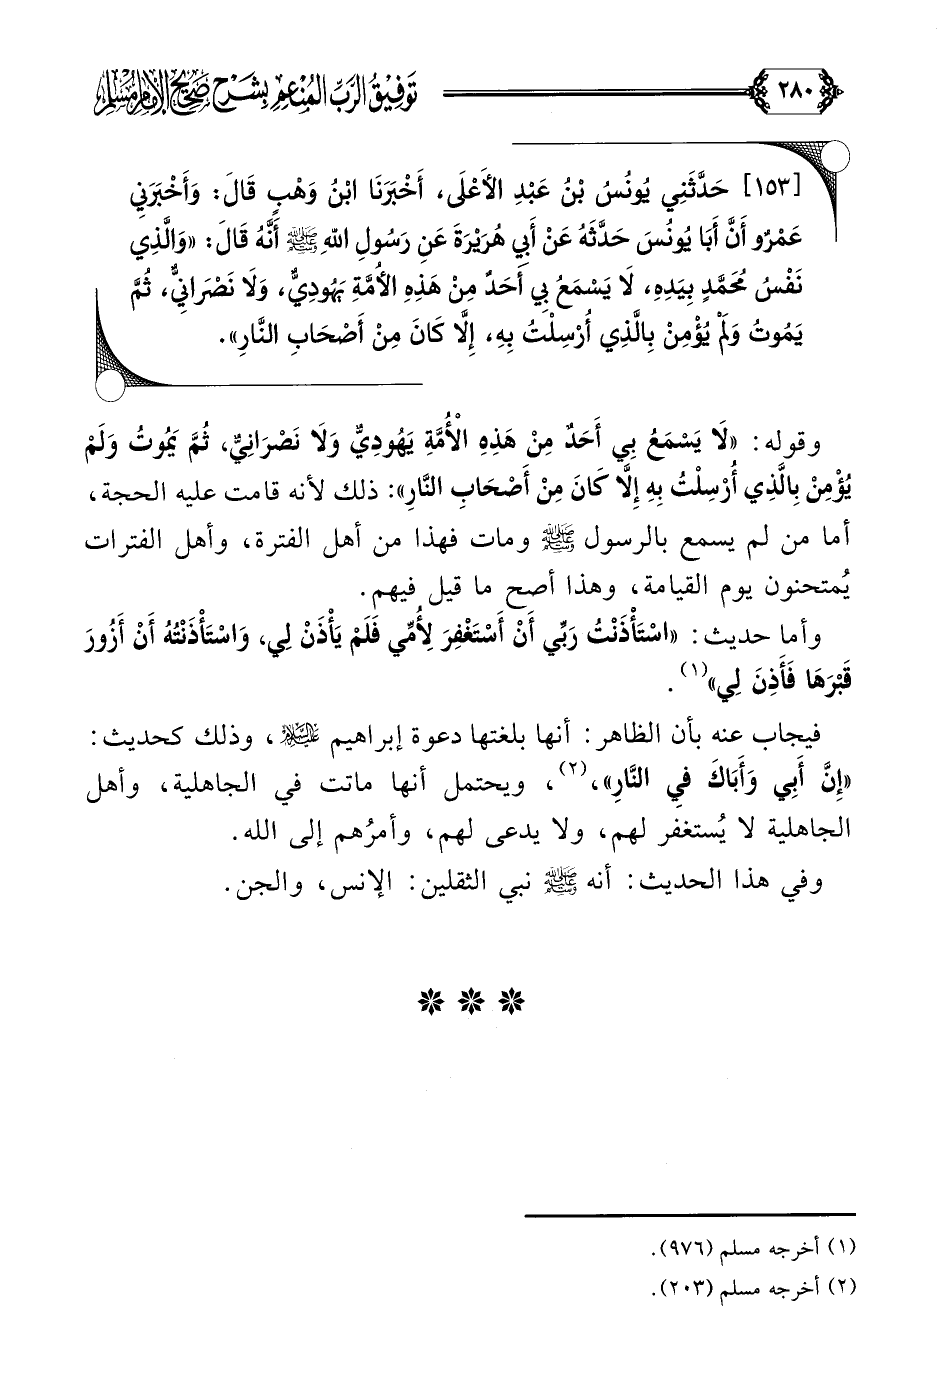 ٢٨٠ توفيق الرب المنعم بشرح صحيح الإمام مسلم
[١٥٣] حَدَّثَنِي يُونُسُ بْنُ عَبْدِ الأَعْلَى، أَخْبَرَنَا ابْنُ وَهْبٍ قَالَ: وَأَخْبَرَنِي
عَمْرٌو أَنَّ أَبَا يُونُسَ حَدَّثَهُ عَنْ أَبِي هُرَيْرَةَ عَنِ رَسُولِ اللهِ ﷺ أَنَّهُ قَالَ: «وَالَّذِي
نَفْسُ مُحَمَّدٍ بِيَدِهِ، لَا يَسْمَعُ بِي أَحَدٌ مِنْ هَذِهِ الأُمَّةِ يَهُودِيٌّ، وَلَا نَصْرَانِيٌّ، ثُمَّ
يَمُوتُ وَلَمْ يُؤْمِنْ بِالَّذِي أُرْسِلْتُ بِهِ، إِلَّا كَانَ مِنْ أَصْحَابِ النَّارِ».
وقوله: «لَا يَسْمَعُ بِي أَحَدٌ مِنْ هَذِهِ الْأُمَّةِ يَهُودِيٌّ وَلَا نَصْرَانِيٌّ، ثُمَّ يَمُوتُ وَلَمْ
يُؤْمِنْ بِالَّذِي أُرْسِلْتُ بِهِ إِلَّا كَانَ مِنْ أَصْحَابِ النَّارِ»: ذلك لأنه قامت عليه الحجة،
أما من لم يسمع بالرسول ﷺ ومات فهذا من أهل الفترة، وأهل الفترات
يُمتحنون يوم القيامة، وهذا أصح ما قيل فيهم.
وأما حديث: «اسْتَأْذَنْتُ رَبِّي أَنْ أَسْتَغْفِرَ لِأُمِّي فَلَمْ يَأْذَنْ لِي، وَاسْتَأْذَنْتُهُ أَنْ أَزُورَ
قَبْرَهَا فَأَذِنَ لِي»(١).
فيجاب عنه بأن الظاهر: أنها بلغتها دعوة إبراهيم عليه السلام، وذلك كحديث:
«إِنَّ أَبِي وَأَبَاكَ فِي النَّارِ»،(٢)، ويحتمل أنها ماتت في الجاهلية، وأهل
الجاهلية لا يُستغفر لهم، ولا يدعى لهم، وأمرُهم إلى الله.
وفي هذا الحديث: أنه ﷺ نبي الثقلين: الإنس، والجن.
(١) أخرجه مسلم (٩٧٦).
(٢) أخرجه مسلم (٢٠٣).